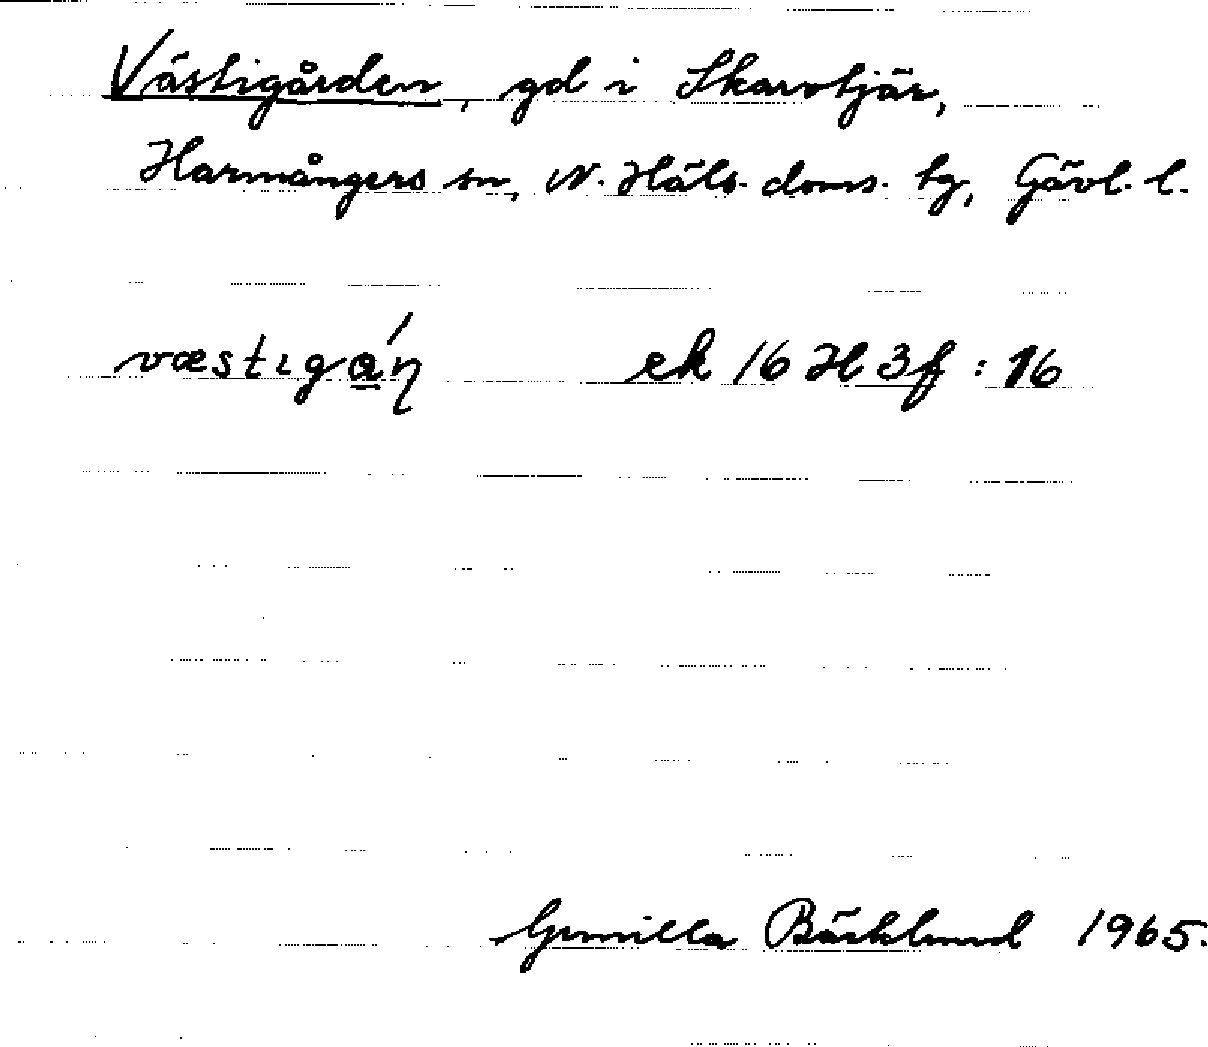 Västigården, gd i Skarvtjär,
Harmångers sn, N. Häls. doms. hg, Gävl. l.
væstıgą́ŋ ek 16 H 3f : 16
Gunilla Bäcklund 1965.